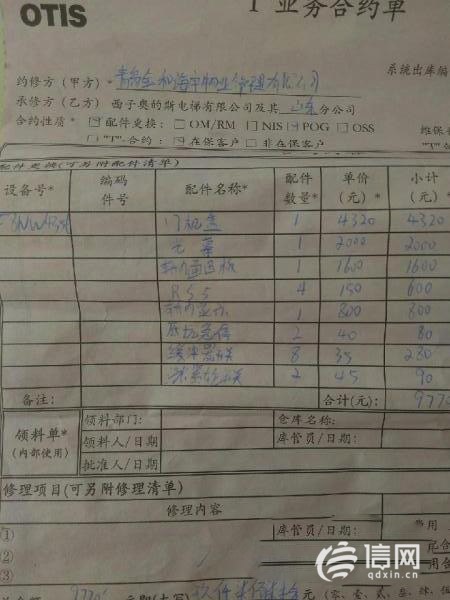 OTIS
T 业务合约单
系统出库编
约修方（甲方）* 青岛金和海平物业管理有限公司
承修方（乙方）西子奥的斯电梯有限公司及其 山东 分公司
合约性质* 配件更换：□ OM/RM □ NIS POG □ OSS
维保
□"T"合约：在保客户 □ 非在保客户
配件更换(可另附配件清单)
设备号* 编码件号 配件名称* 配件数量* 单价（元）* 小计（元）*
门机盒 1 4320 4320
光幕 1 2000 2000
轿内通迅板 1 1600 1600
RS5 4 150 600
轿内显示 1 300 300
底坑急停 2 40 80
缓冲器开关 8 35 280
2 45 90
备注： 合计(元)： 977
领料单* (内部使用) 领料部门： 仓库名称：
领料人/日期 库管员/日期：
批准人/日期
修理项目(可另附修理清单)
修理内容
① 库管员/日期：
②
③
元 (零、壹、贰、肆、伍
信网
qdxin.cn